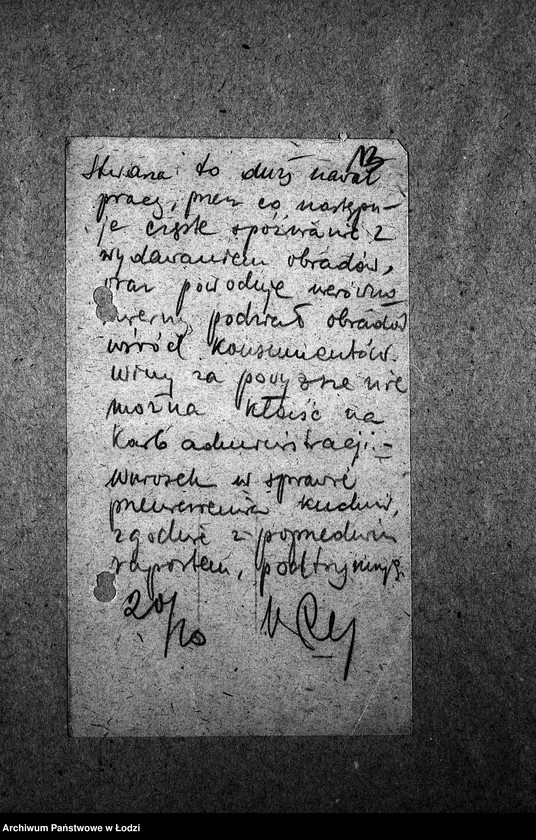 Stwarza to duży nawał
pracy, przez co następu-
je częste spóźnianie z
wydawaniem obiadów,
oraz powoduje nierówno-
mierny podział obiadów
wśród konsumentów.
Winy za powyższe nie
można kłaść na
karb administracji.-
Wniosek w sprawie
przeniesienia kuchni,
zgodnie z poprzednim
raportem, podtrzymuję.
20/10
Archiwum Państwowe w Łodzi